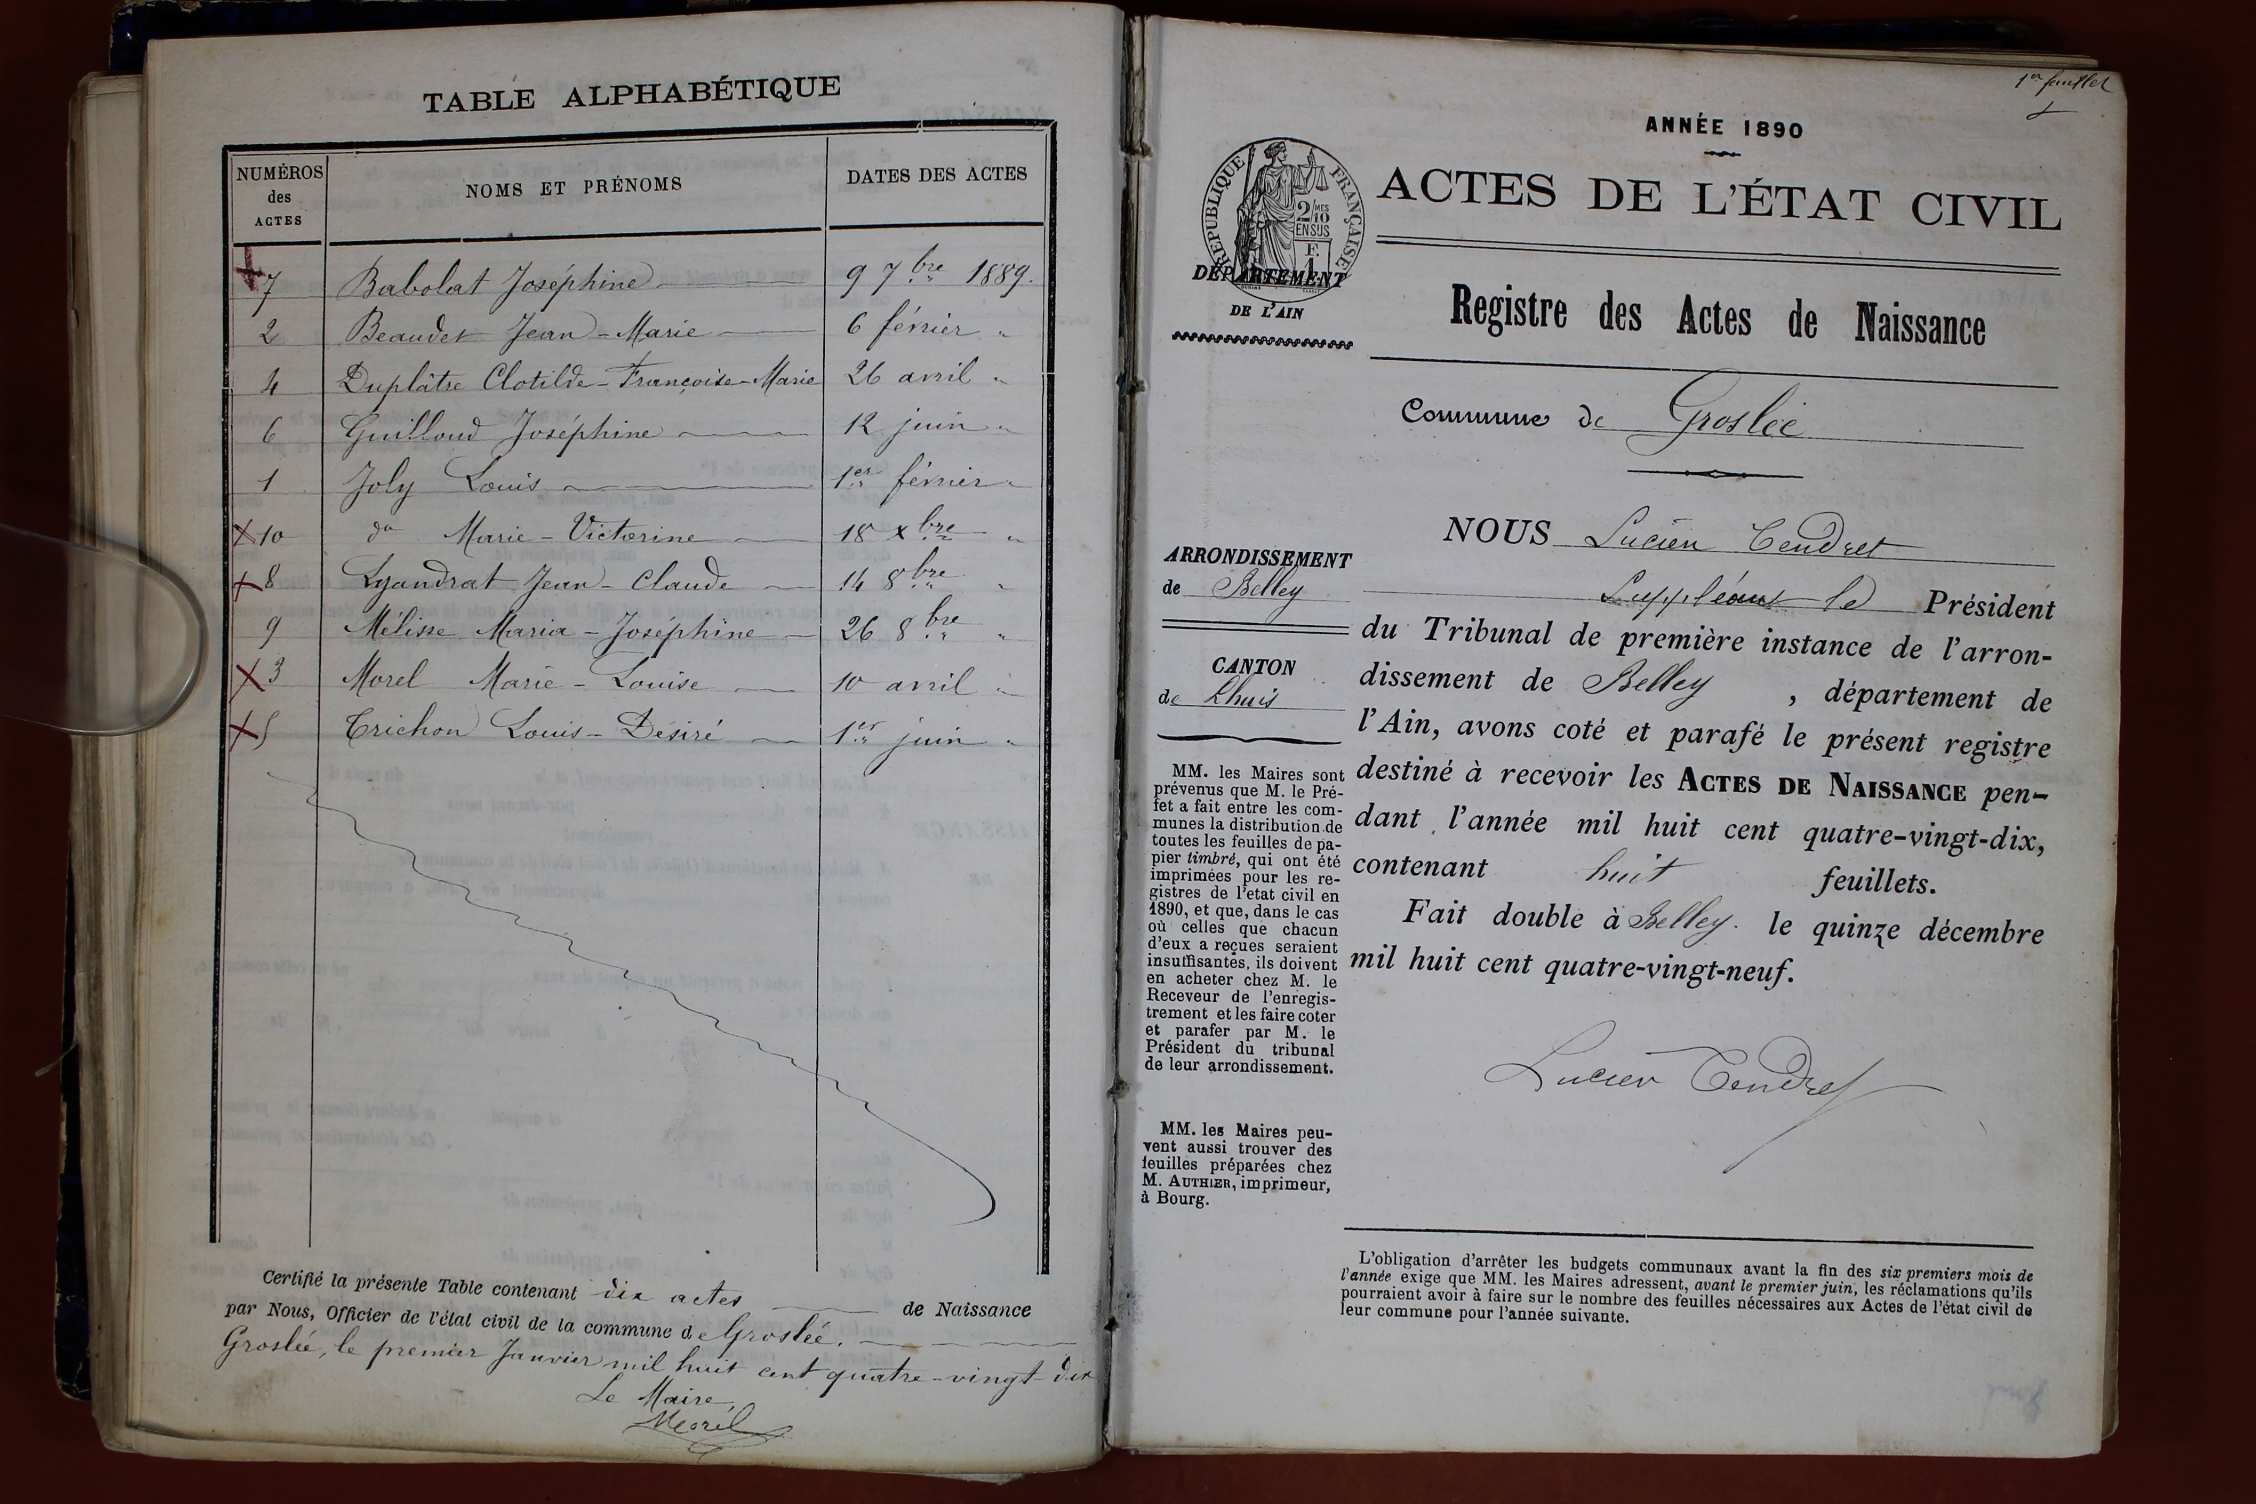 TABLE ALPHABÉTIQUE
NUMÉROS des ACTES | NOMS ET PRÉNOMS | DATES DES ACTES
7 Babolat Joséphine 9 7bre 1889.
2 Beaudet Jean-Marie 6 février "
4 Duplâtre Clotilde-Françoise-Marie 26 avril "
6 Guilloud Joséphine 12 juin "
1 Joly Louis 1er février "
10 do Marie-Victorine 18 xbre "
8 Lyandrat Jean-Claude 14 8bre "
9 Mélisse Maria-Joséphine 26 8bre "
3 Morel Marie-Louise 10 avril "
5 Trichon Louis-Désiré 1er juin "
Certifié la présente Table contenant dix actes de Naissance
par Nous, Officier de l'état civil de la commune de Groslée.
Groslée, le premier Janvier mil huit cent quatre-vingt-dix
Le Maire,
Morel
1er feuillet
ANNÉE 1890
ACTES DE L'ÉTAT CIVIL
RÉPUBLIQUE FRANÇAISE
2/10 MES
EN SUS
F.
1
DÉPARTEMENT
DE L'AIN
Registre des Actes de Naissance
Commune de Groslée
ARRONDISSEMENT
de Belley
CANTON
de Lhuis
MM. les Maires sont
prévenus que M. le Pré-
fet a fait entre les com-
munes la distribution de
toutes les feuilles de pa-
pier timbré, qui ont été
imprimées pour les re-
gistres de l'etat civil en
1890, et que, dans le cas
où celles que chacun
d'eux a reçues seraient
insuffisantes, ils doivent
en acheter chez M. le
Receveur de l'enregis-
trement et les faire coter
et parafer par M. le
Président du tribunal
de leur arrondissement.
MM. les Maires peu-
vent aussi trouver des
feuilles préparées chez
M. AUTHIER, imprimeur,
à Bourg.
NOUS Lucien Tendret
Suppléant le Président
du Tribunal de première instance de l'arron-
dissement de Belley , département de
l'Ain, avons coté et parafé le présent registre
destiné à recevoir les ACTES DE NAISSANCE pen-
dant l'année mil huit cent quatre-vingt-dix,
contenant huit feuillets.
Fait double à Belley. le quinze décembre
mil huit cent quatre-vingt-neuf.
Lucien Tendret
L'obligation d'arrêter les budgets communaux avant la fin des six premiers mois de
l'année exige que MM. les Maires adressent, avant le premier juin, les réclamations qu'ils
pourraient avoir à faire sur le nombre des feuilles nécessaires aux Actes de l'état civil de
leur commune pour l'année suivante.